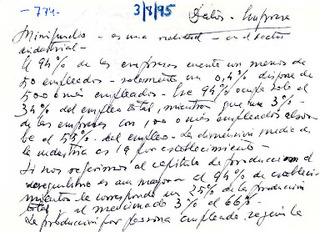 -774- 3/8/95 Datos - Empresas
Minifundio - es una realidad - en el sector
industrial -
el 94% de las empresas cuenta con menos de
50 empleados - solamente un 0,4% dispone de
500 o más empleados - Ese 94% ocupa solo el
34% del empleo total, mientras que un 3% -
de las empresas con 100 o más empleados absor-
be el 53% - del empleo - La dimensión media de
la industria es 19 por establecimiento
Si nos referimos al capítulo de producción el
desequilibrio es aun mayor al 94% de estableci-
mientos le corresponde un 25% de la producción
total y al mencionado 3% el 66% -
La producción por persona empleada, según la